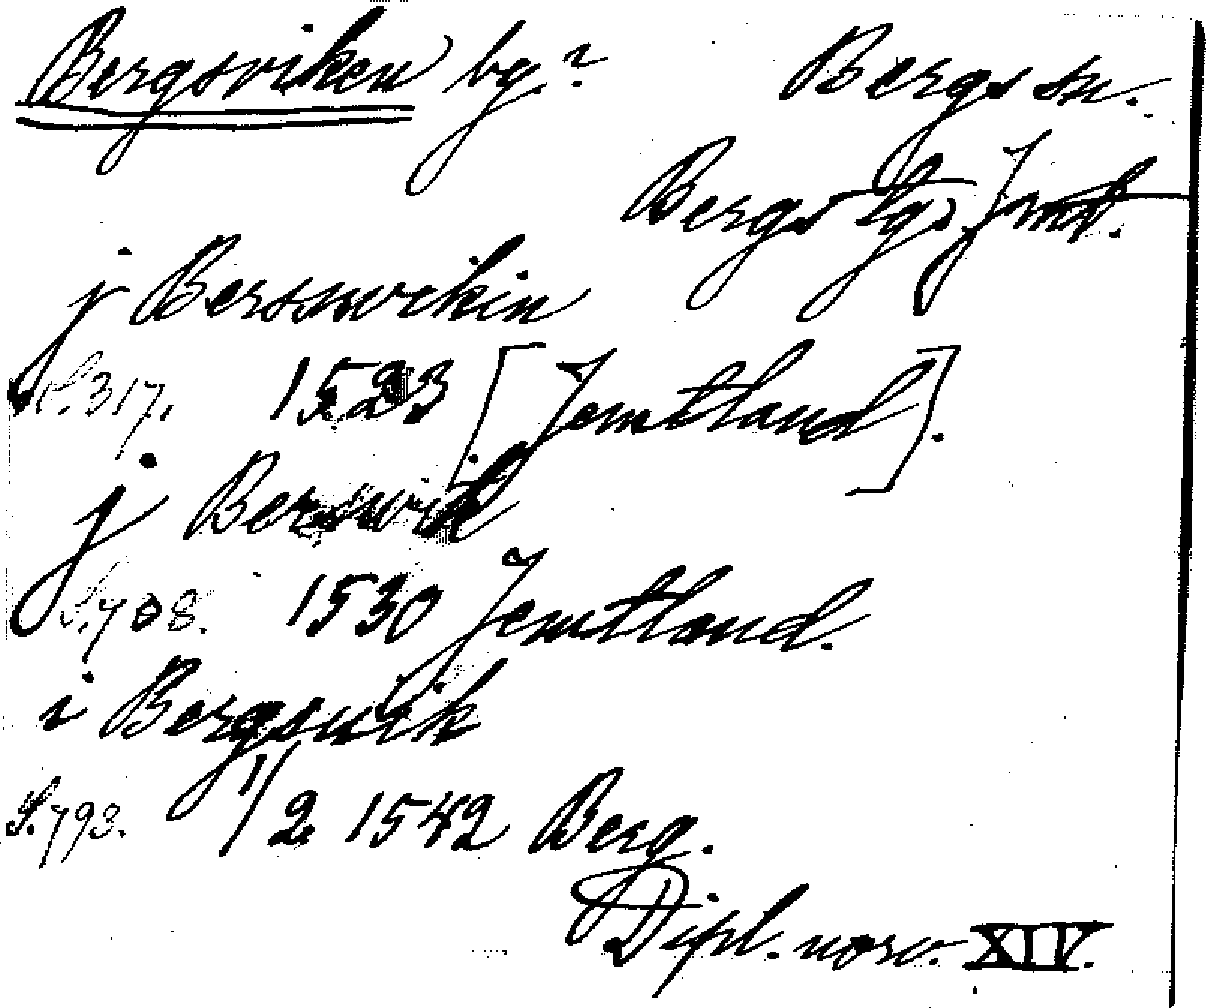 Bergsviken by. Bergs sn.
Bergs tgs. Jmt.
j Bersswikin
S. 317. 1523 [Jemtland].
j Berswik
S. 708. 1530 Jemtland.
i Bergsuik
S. 793. 1/2 1542 Berg.
Dipl. norv. XIV.